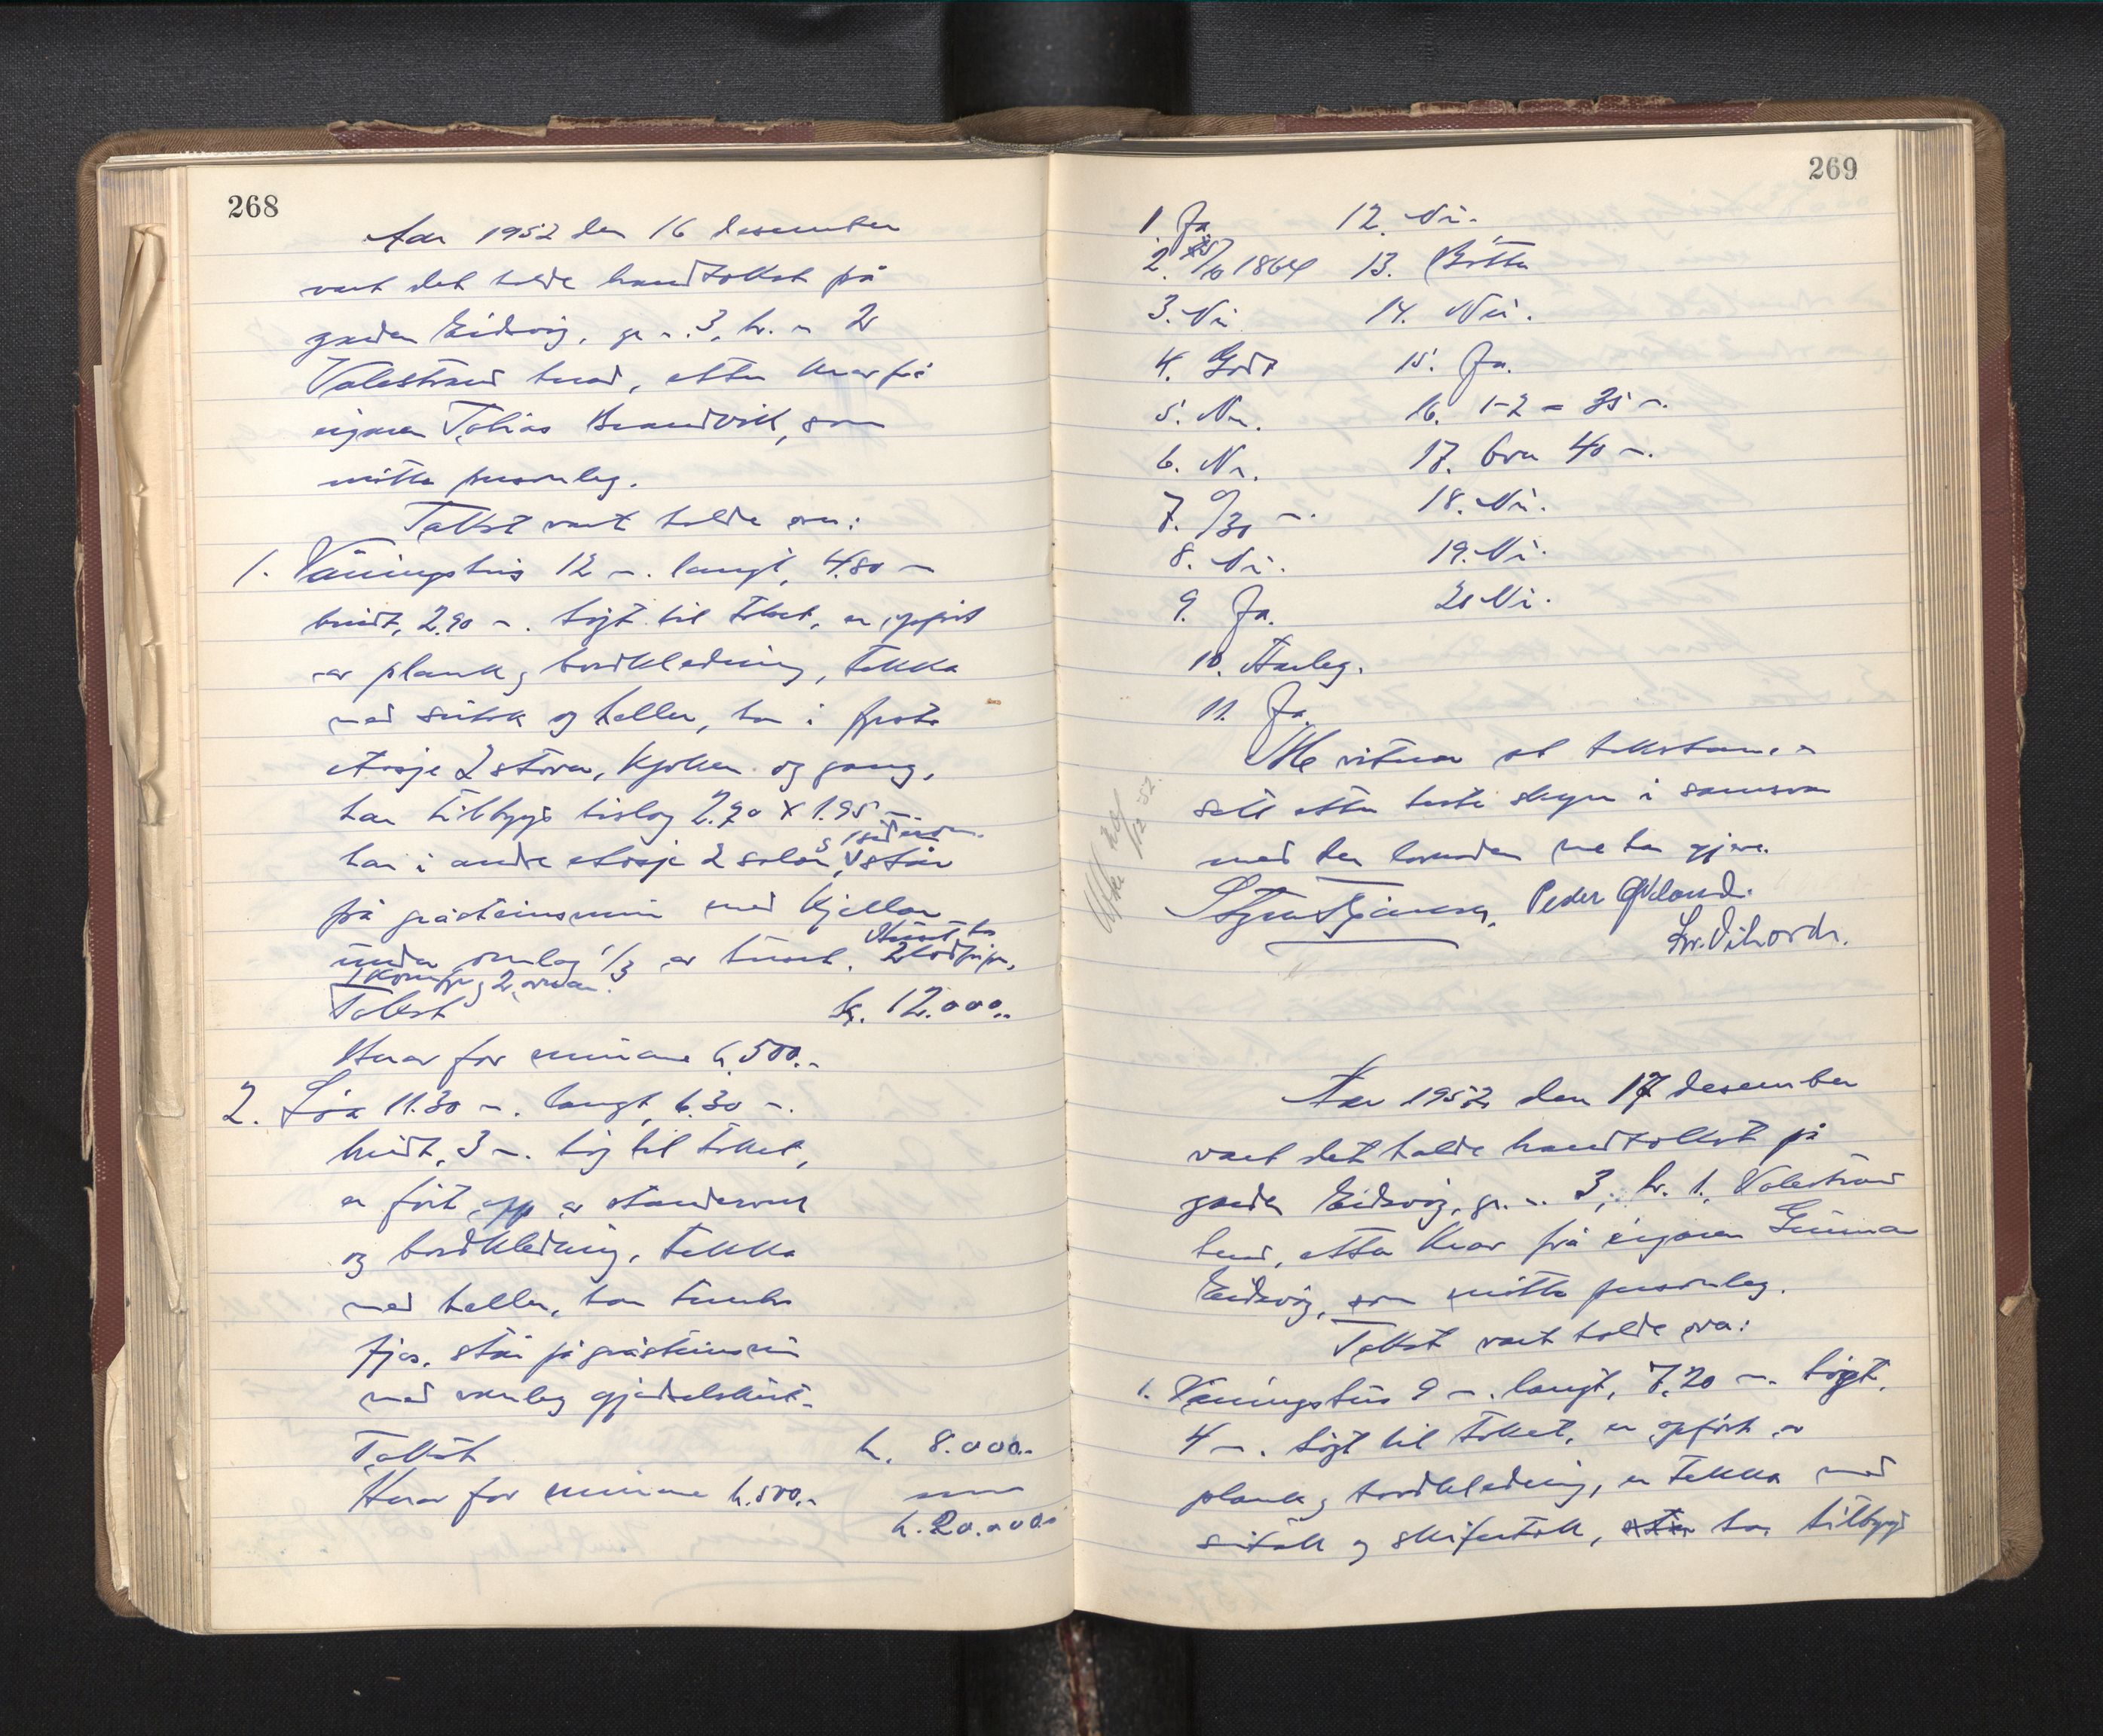 268
Aar 1952 den 16 desember
vart det halde brandtakst på
garden Eidsvåg, gr. n. 3, br. n. 2
Valestrand herad, etter krav frå
eigaren Tobias Brandvik, som
møtte personleg.
Takst vart halde over:
1. Våningshus 12 m. langt, 4.80 m
breidt, 2.90 m. høgt til taket, er oppført
av plank og bordkledning, tekka
med sutak og heller, har i fyrste
etasje 2 stover, kjøken og gang,
har tilbygt bislag 2.70 x 1.95 m.
har i andre etasje 2 salar, står
på gråsteinsmur med kjellar
under omlag 1/3 av huset. Huset har
2 lodpipe,
1 komfyr og 2 omnar.
Takst kr. 12.000.-
Krav for murane kr. 500.-
2. Løa 11.30 m. langt, 6.30 m.
breidt, 3 m. høg til taket,
er ført opp av standerverk
og bordkledning, tekka
med heller, har
fjøs, står på gråsteinsmur
med vanleg gjødselskut.
Takst kr. 8.000.-
Krav for murane kr. 500.-
kr. 20.000.-
269
1. Ja 12. Nei.
2. /10 1864 13. Bøtte
3. Nei 14. Nei.
4. Godt 15. Ja.
5. Nei. 16. 1-2 = 35 m.
6. Nei. 17. Over 40 m.
7. 0/30 m. 18. Nei.
8. Nei. 19. Nei.
9. Ja. 20 Nei.
10. Farleg.
11. Ja.
Me vitnar at takstane er
sett etter beste skyn i samsvar
med den kunnskap me har
Peder Økland.
Aar 1952 den 17 desember
vart det halde brandtakst på
garden Eidsvåg, gr. n. 3, br. 1, Valestrand
herad, etter krav frå eigaren Gunnar
Eidsvåg, som møtte personleg.
Takst vart halde over:
1. Våningshus 9 m. langt, 7,20 m. høgt,
4 m. høgt til taket, er oppført av
plank og bordkledning, er tekka med
sutak og skifertak, har tilbygt